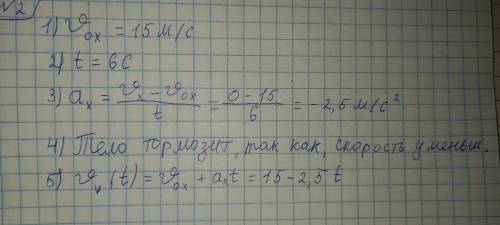 √2
1) ϑ₀ₓ = 15 м/с
2) t = 6 с
3) aₓ = (ϑₓ - ϑ₀ₓ)/t = (0 - 15)/6 = -2,5 м/с²
4) Тело тормозит, так как, скорость уменьш.
5) ϑₓ(t) = ϑ₀ₓ + aₓt = 15 - 2,5 t